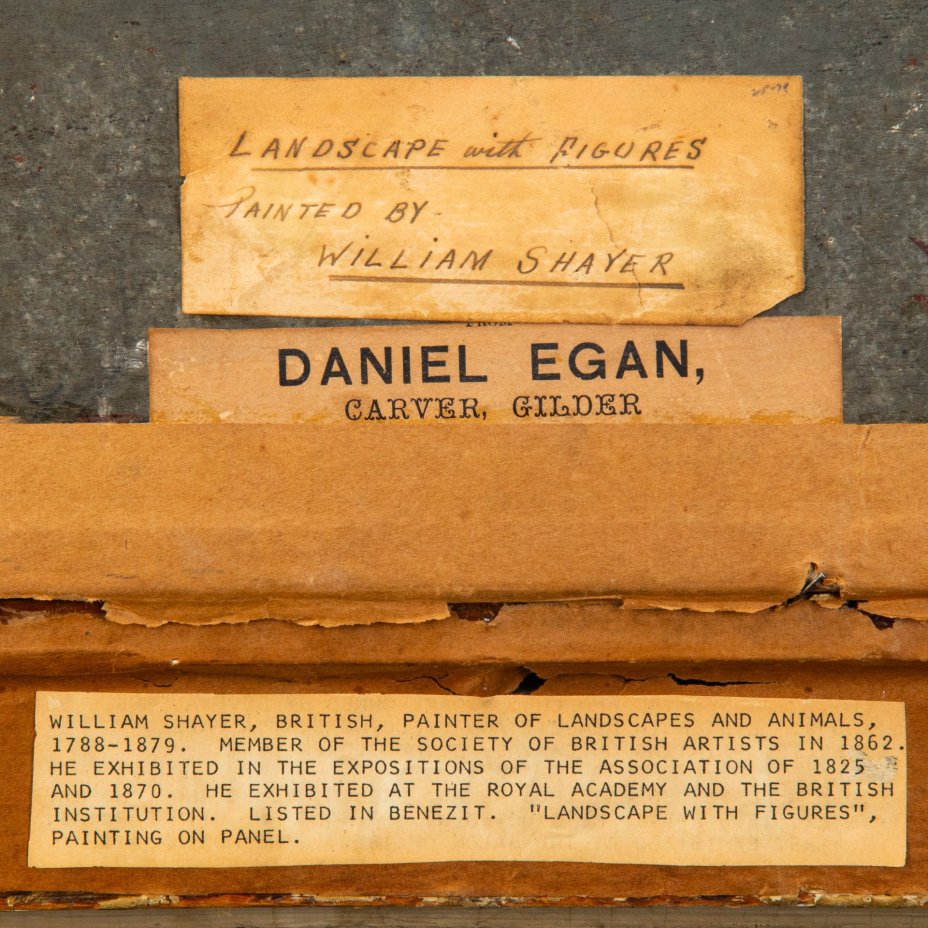 LANDSCAPE with FIGURES
PAINTED BY
WILLIAM SHAYER
FROM
DANIEL EGAN,
CARVER, GILDER
WILLIAM SHAYER, BRITISH, PAINTER OF LANDSCAPES AND ANIMALS,
1788-1879. MEMBER OF THE SOCIETY OF BRITISH ARTISTS IN 1862.
HE EXHIBITED IN THE EXPOSITIONS OF THE ASSOCIATION OF 1825
AND 1870. HE EXHIBITED AT THE ROYAL ACADEMY AND THE BRITISH
INSTITUTION. LISTED IN BENEZIT. "LANDSCAPE WITH FIGURES",
PAINTING ON PANEL.